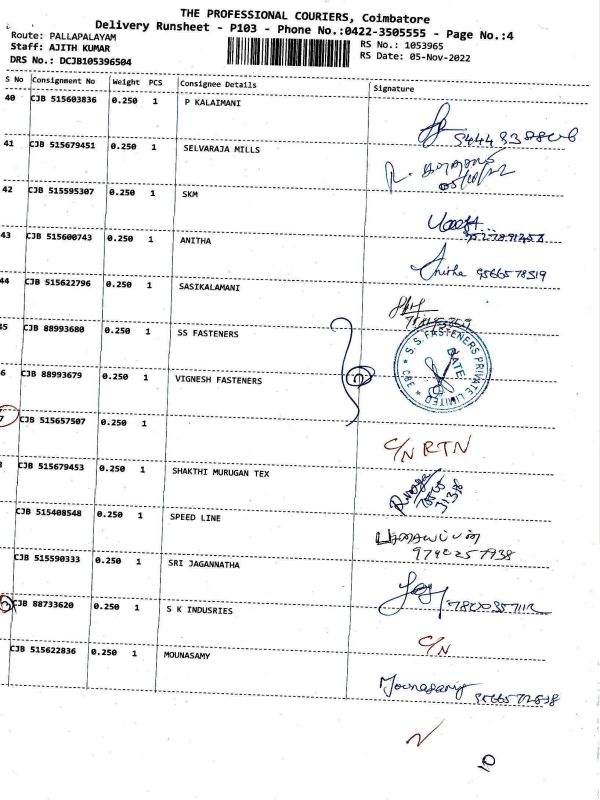 THE PROFESSIONAL COURIERS, Coimbatore
Delivery Runsheet - P103 - Phone No.:0422-3505555 - Page No.:4
Route: PALLAPALAYAM
Staff: AJITH KUMAR
DRS No.: DCJB105396504
RS No.: 1053965
RS Date: 05-Nov-2022
S No Consignment No Weight PCS Consignee Details Signature
40 CJB 515603836 0.250 1 P KALAIMANI
41 CJB 515679451 0.250 1 SELVARAJA MILLS
05/11/22
42 CJB 515595307 0.250 1 SKM
43 CJB 515600743 0.250 1 ANITHA
Anitha 9566578519
44 CJB 515622796 0.250 1 SASIKALAMANI
45 CJB 88993680 0.250 1 SS FASTENERS
S.S. FASTENERS PRIVATE LIMITED
CBE
DATE
6 CJB 88993679 0.250 1 VIGNESH FASTENERS
7 CJB 515657507 0.250 1
C/N RTN
CJB 515679453 0.250 1 SHAKTHI MURUGAN TEX
CJB 515408548 0.250 1 SPEED LINE
9790257938
CJB 515590333 0.250 1 SRI JAGANNATHA
CJB 88733620 0.250 1 S K INDUSRIES
C/N
CJB 515622836 0.250 1 MOUNASAMY
Mounasamy
10